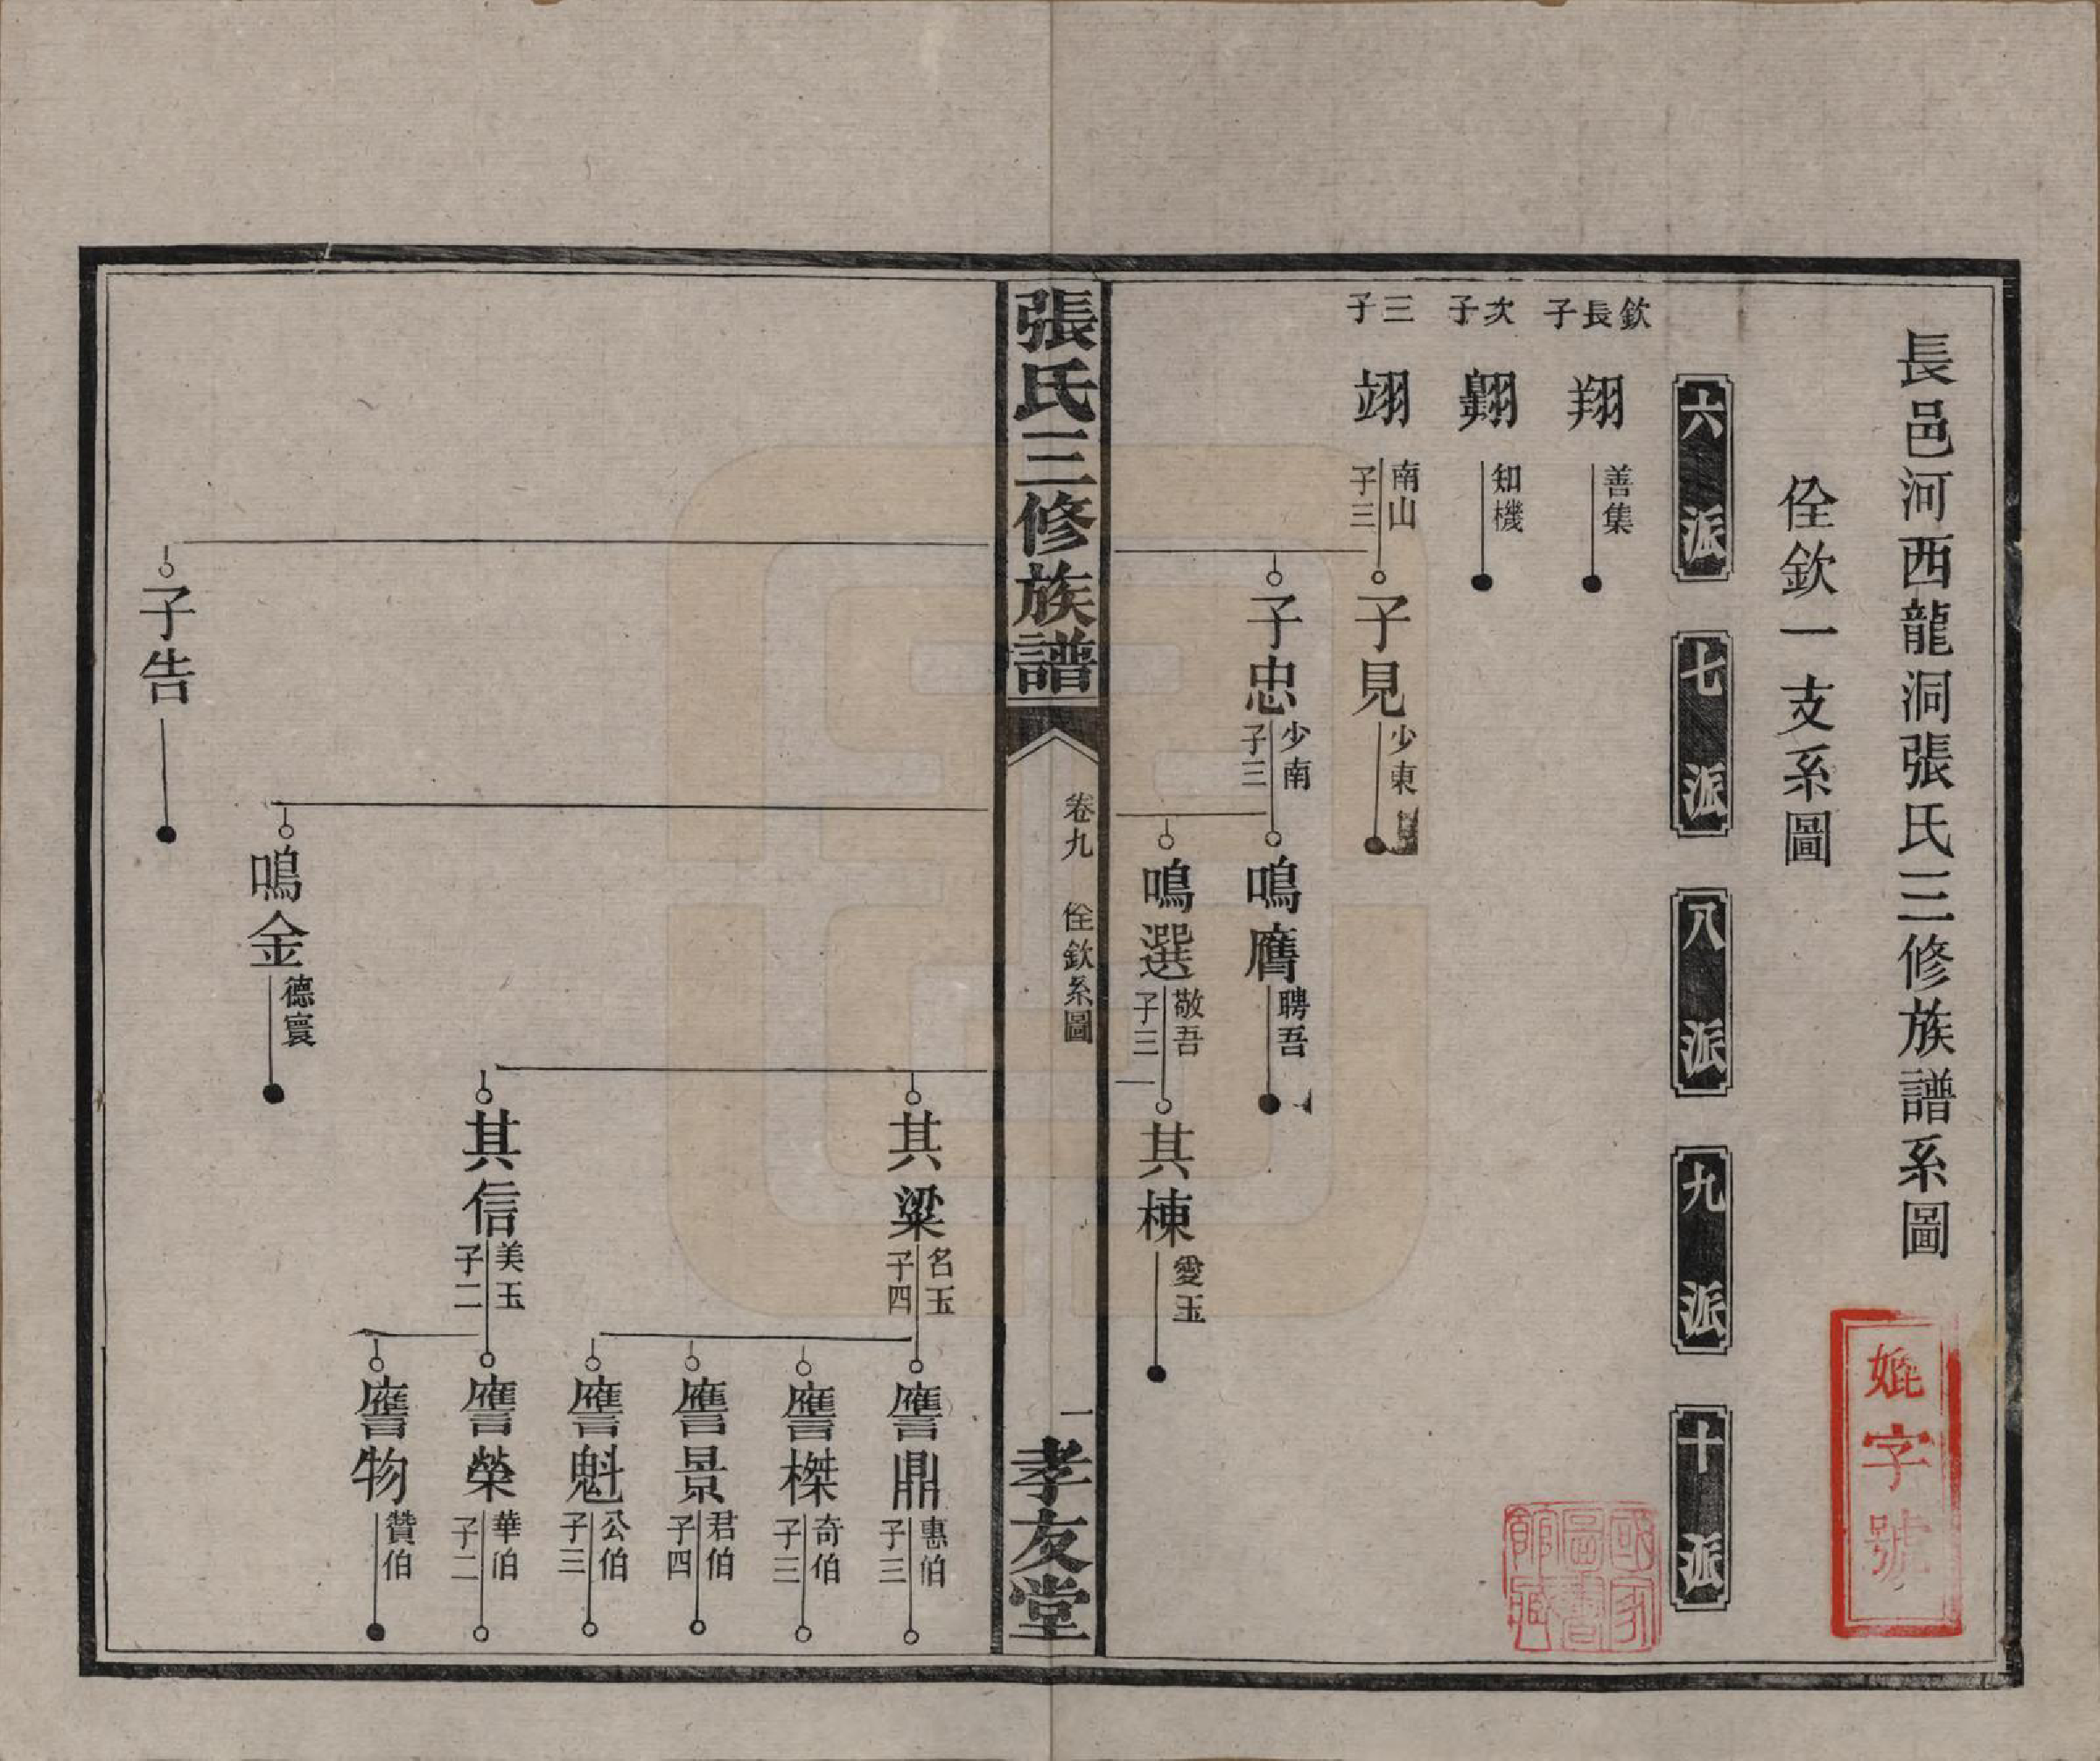 長邑河西龍洞張氏三修族譜系圖
佺欽一支系圖
六派
七派
八派
九派
十派
欽長子
翔
善集
次子
翺
知機
三子
翊
南山
子三
子見
少東
子忠
少南
子三
鳴鴈
聘吾
鳴選
敬吾
子三
其棟
愛玉
張氏三修族譜
卷九
佺欽系圖
一
孝友堂
其粱
名玉
子四
譍鼎
惠伯
子三
譍榤
奇伯
子三
譍景
君伯
子四
譍魁
公伯
子三
其信
美玉
子二
譍榮
華伯
子二
譍物
贊伯
鳴金
德寰
子告
婫字號
國家圖書館藏